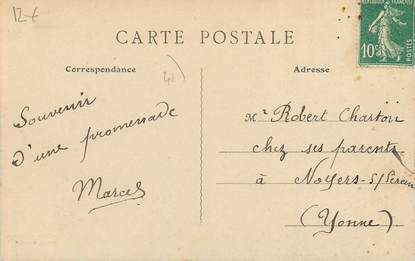 12€
CARTE POSTALE
Correspondance
Adresse
41
Souvenir
d'une promenade
Marcel
Mr Robert
chez ses parents
à Noyers-s/Serein
(Yonne)
10c
POSTES